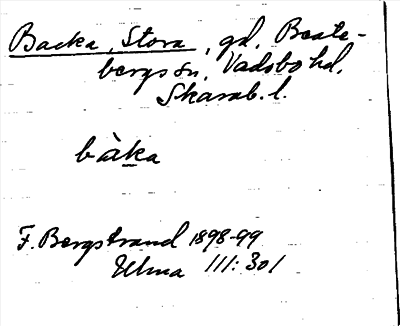 Backa, Stora, gd, Beate-
bergs sn, Vadsbo hd,
Skarab. l.
bàka
F. Bergstrand 1898-99
Ulma 111:301